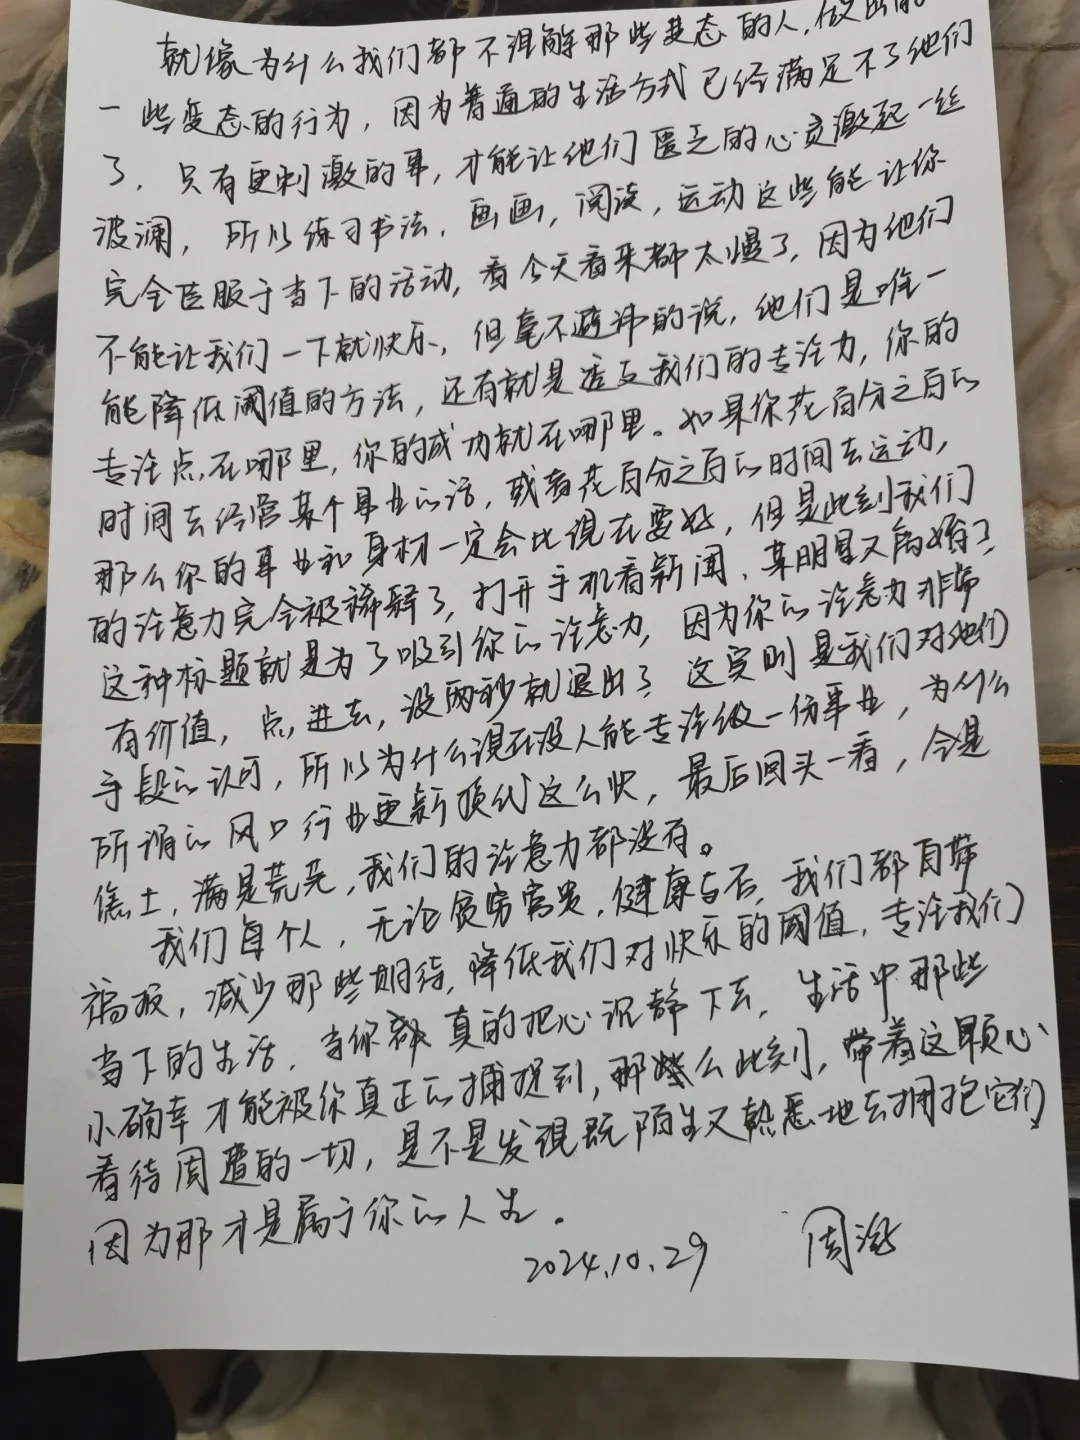 就像为什么我们都不理解那些变态的人,做出的
一些变态的行为,因为普通的生活方式已经满足不了他们
了,只有更刺激的事,才能让他们匮乏的心灵激起一丝
波澜,所以练习书法,画画,阅读,运动这些能让你
完全臣服于当下的活动,看今天看来都太慢了,因为他们
不能让我们一下就快乐,但毫不避讳的说,他们是唯一
能降低阈值的方法,还有就是透支我们的专注力,你的
专注点在哪里,你的成功就在哪里。如果你花百分之百的
时间去经营某个事业的话,或者花百分之百的时间去运动,
那么你的事业和身材一定会比现在要好,但是此刻我们
的注意力完全被稀释了,打开手机看新闻,某明星又离婚了,
这种标题就是为了吸引你的注意力,因为你的注意力非常
有价值,点进去,没两秒就退出了,这实则是我们对他们
手段的认可,所以为什么现在没人能专注做一份事业,为什么
所谓的风口行业更新换代这么快,最后回头一看,全是
焦土,满是荒芜,我们的注意力都没有。
我们每个人,无论贫穷富贵,健康与否,我们都自带
福报,减少那些期待,降低我们对快乐的阈值,专注我们
当下的生活,当你真的把心沉静下去,生活中那些
小确幸才能被你真正的捕捉到,那么此刻,带着这颗心
看待周遭的一切,是不是发现既陌生又熟悉地去拥抱它们,
因为那才是属于你的人生。
2024.10.29 周